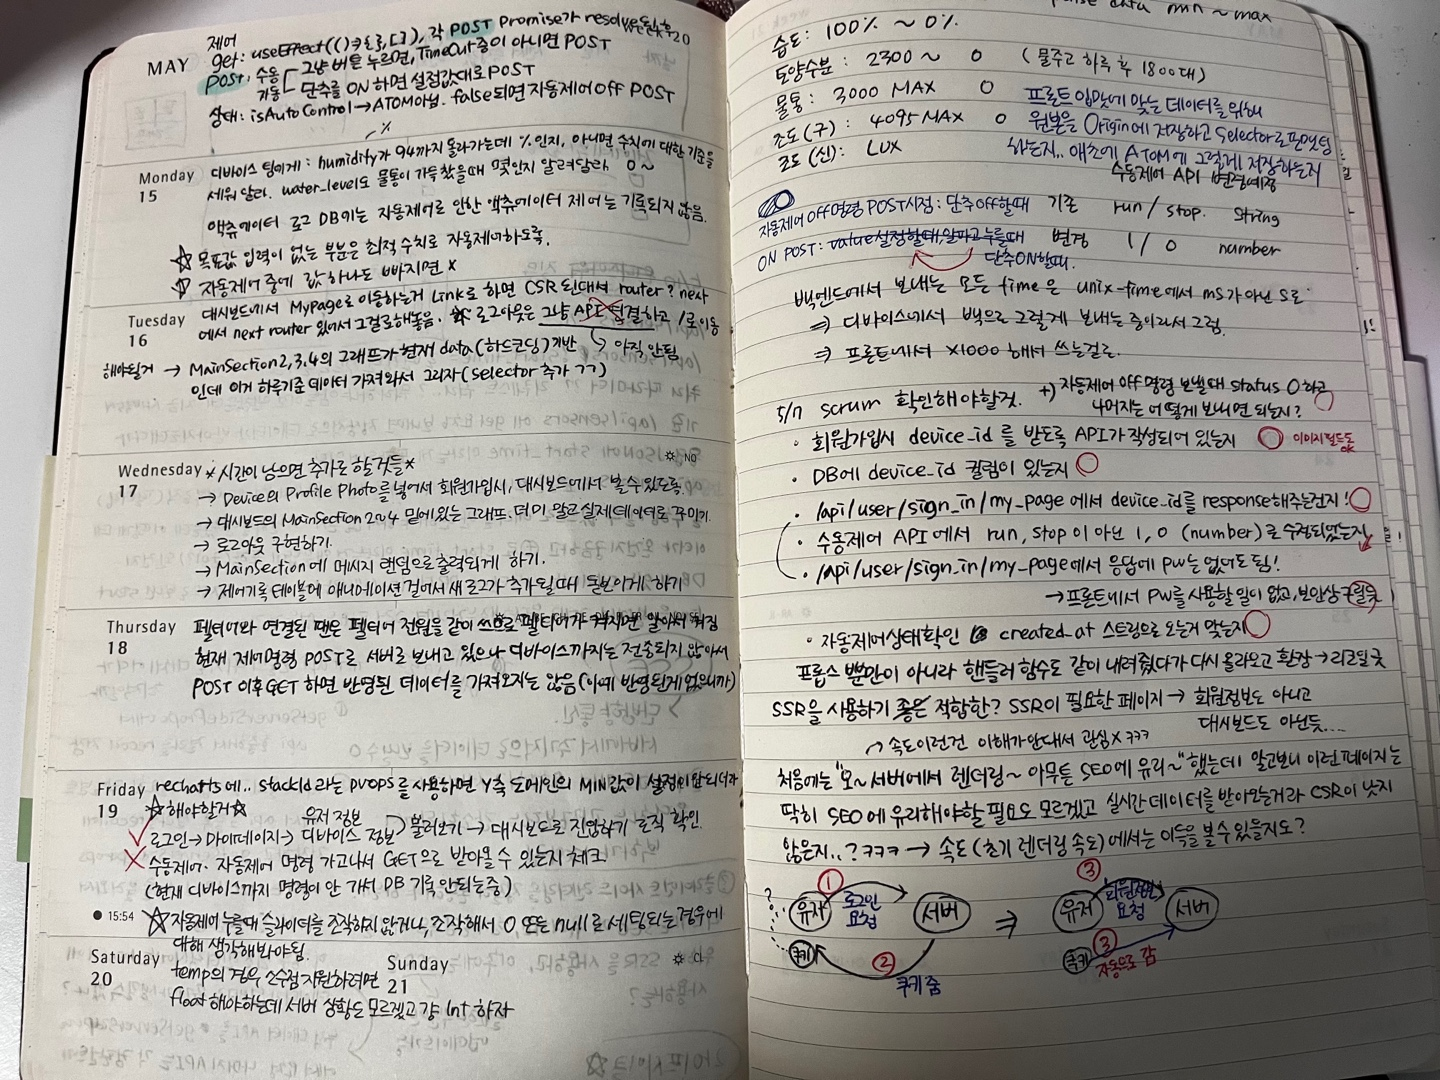 MAY
제어
get: useEffect(()=>{},[]), 각 POST Promise가 resolve된 후
POST: 수동 그냥 버튼 누르면, Timeout 중이 아니면 POST
자동 단추를 ON 하면 설정값대로 POST
상태: isAutoControl → ATOM아님. false되면 자동제어 OFF POST
Monday
15
디바이스 팀에게: humidity가 94까지 올라가는데 %인지, 아니면 수치에 대한 기준을
세워 달라. water_level도 물통이 가득찼을때 몇인지 알려달라. 0~
액츄에이터 로그 DB에는 자동제어로 인한 액츄에이터 제어는 기록되지 않음.
☆ 목표값 입력이 없는 부분은 최적 수치로 자동제어하도록.
자동제어 중에 값 하나도 빠지면 X
Tuesday
16
대시보드에서 MyPage로 이동하는거 Link로 하면 CSR 된대서 router? next
에서 next router 있어서 그걸로해놓음. ☆ 로그아웃은 그냥 API 연결하고 /로 이동
아직 안됨
해야될거 → MainSection2,3,4의 그래프가 현재 data(하드코딩)기반
인데 이거 하루기준 데이터 가져와서 그리자(selector 추가 ㄱㄱ)
Wednesday
17
*시간이 남으면 추가로 할 것들*
→ Device의 Profile Photo를 넣어서 회원가입시, 대시보드에서 볼 수 있도록.
→ 대시보드의 MainSection 2~4 밑에 있는 그래프. 더미 말고 실제데이터로 꾸미기.
→ 로그아웃 구현하기.
→ MainSection에 메시지 랜덤으로 출력되게 하기.
→ 제어기록 테이블에 애니메이션 걸어서 새 로그가 추가될때 돋보이게 하기
Thursday
18
펠티어와 연결된 팬은 펠티어 전원을 같이 쓰므로 펠티어가 켜지면 알아서 켜짐
현재 제어명령 POST로 서버로 보내고 있으나 디바이스까지는 전송되지 않아서
POST 이후 GET 하면 반영된 데이터를 가져오지는 않음(아예 반영된게 없으니까)
Friday
19
recharts에.. stackId라는 props를 사용하면 Y축 도메인의 MIN값이 설정이 안되더라
☆해야할거☆
유저 정보
로그인→마이페이지→디바이스 정보 불러오기 → 대시보드로 진입하기 로직 확인.
X 수동제어. 자동제어 명령 가고나서 GET으로 받아올 수 있는지 체크
(현재 디바이스까지 명령이 안 가서 DB 기록 안되는 중)
15:54 ☆자동제어 누를때 슬라이더를 조작하지 않거나, 조작해서 0 또는 null로 세팅되는 경우에
대해 생각해봐야됨.
Saturday
20
temp의 경우 소수점 지원하려면
float 해야하는데 서버 상황도 모르겠고 걍 Int 하자
Sunday
21
data min ~ max
습도: 100% ~ 0%.
토양수분: 2300 ~ 0 (물주고 하루 후 1800대)
물통: 3000 MAX 0
조도(구): 4095 MAX 0
조도(신): LUX
프론트 입맛에 맞는 데이터를 위해
원본을 Origin에 저장하고 Selector로 판별팅
하는지.. 애초에 ATOM에 그렇게 저장하는지
수동제어 API 변경예정
자동제어 OFF명령 POST시점: 단추 off할때
ON POST: value설정할때, 알파고누를때
단추ON할때.
기존 run / stop. string
변경 1 / 0 number
백엔드에서 보내는 모든 time은 unix-time에서 ms가 아닌 s로
⇒ 디바이스에서 백으로 그렇게 보내는 중이라서 그럼.
⇒ 프론트에서 x1000 해서 쓰는걸로.
5/17 scrum 확인해야할것.
+) 자동제어 off 명령 보낼때 status 0 하고
나머지는 어떻게 보내면 되는지?
· 회원가입시 device_id 를 받도록 API가 작성되어 있는지
이미지필드도 OK
· DB에 device_id 컬럼이 있는지
· /api/user/sign_in/my_page 에서 device_id를 response해주는건지!
· 수동제어 API 에서 run, stop 이 아닌 1, 0 (number)로 수정되었는지
· /api/user/sign_in/my_page에서 응답에 pw는 없어도 됨!
→ 프론트에서 pw를 사용할 일이 없고, 보안상
· 자동제어상태확인 created-at 스트링으로 오는게 맞는지
프롭스 뿐만이 아니라 핸들러 함수도 같이 내려줬다가 다시 올라오고 환장 → 리코일 굿
SSR을 사용하기 좋은 적합한? SSR이 필요한 페이지 → 회원정보도 아니고
대시보드도 아닌듯....
속도이런건 이해가 안대서 관심X ㅋㅋㅋ
처음에는 "오~ 서버에서 렌더링~ 아무튼 SEO에 유리~" 했는데 알고보니 이런 페이지는
딱히 SEO에 유리해야할 필요도 모르겠고 실시간 데이터를 받아오는거라 CSR이 낫지
않은지..? ㅋㅋㅋ → 속도(초기 렌더링 속도)에서는 이득을 볼 수 있을지도?
①
유저
로그인
요청
서버
?
쿠키
②
쿠키 줌
⇒
③
유저
회원정보
요청
서버
쿠키
③
자동으로 감